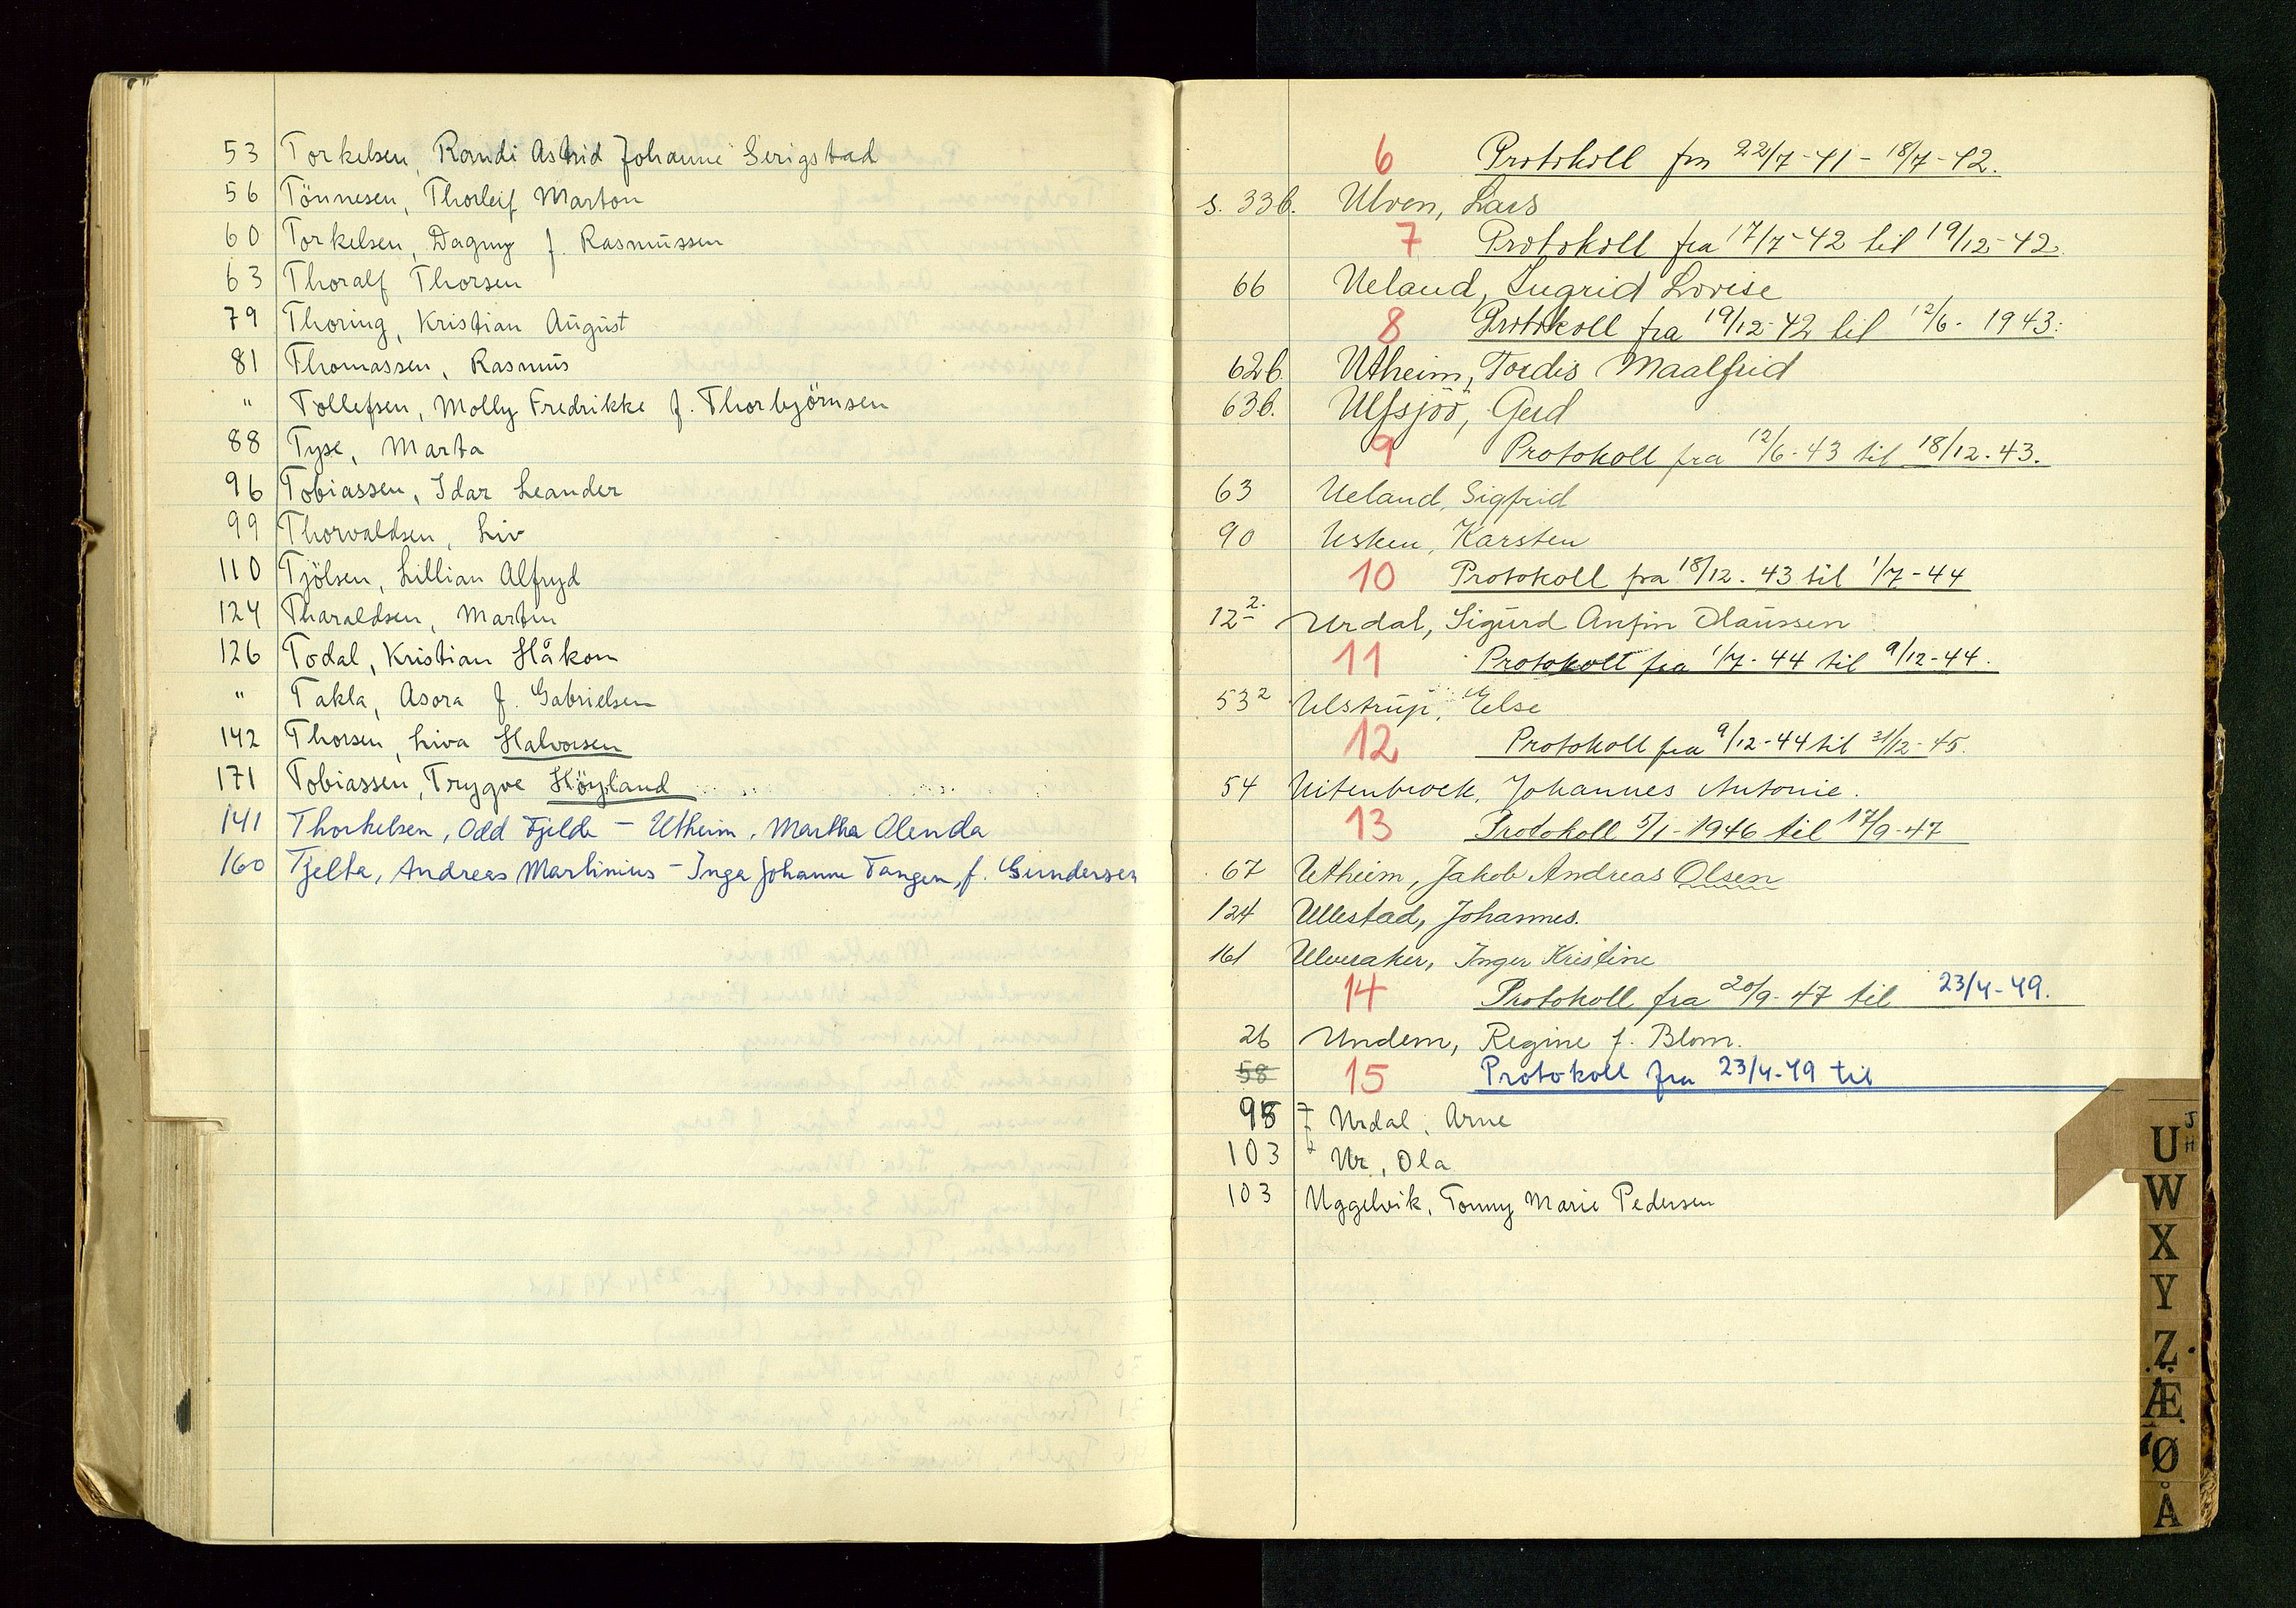 53 Torkelsen, Randi Astrid Johanne Serigstad
56 Tönnesen, Thorleif Marton
60 Torkelsen, Dagny f. Rasmussen
63 Thoralf Thorsen
79 Thoring, Kristian August
81 Thomassen, Rasmus
" Tollefsen, Molly Fredrikke f. Thorbjörnsen
88 Tyse, Marta
96 Tobiassen, Idar Leander
99 Thorvaldsen, Liv
110 Tjölsen, Lillian Alfryd
124 Tharaldsen, Martin
126 Todal, Kristian Håkon
" Takla, Asora f. Gabrielsen
142 Thorsen, Liva Halvorsen
171 Tobiassen, Trygve Höyland
141 Thorkelsen, Odd Fjelde - Utheim, Martha Olenda
160 Tjelta, Andreas Martinius - Inga Johanne Tangen, f. Gundersen
6 Protokoll fra 22/7-41 - 18/7-42.
s. 33b. Ulven, Lars
7 Protokoll fra 17/7-42 til 19/12-42.
66 Ueland, Ingrid Lovise
8 Protokoll fra 19/12-42 til 12/6-1943.
62b. Utheim, Tordis Maalfrid
63b. Ulfsjöö, Gerd
9 Protokoll fra 12/6-43 til 18/12-43.
63 Ueland, Sigfrid
90 Usken, Karsten
10 Protokoll fra 18/12-43 til 1/7-44
12 2. Urdal, Sigurd Anfin Olaussen
11 Protokoll fra 1/7-44 til 9/12-44.
53 2 Ulstrup, Else
12 Protokoll fra 9/12-44 til 31/12-45.
54 Uitenbroek, Johannes Antonie.
13 Protokoll 5/1-1946 til 17/9-47
67 Utheim, Jakob Andreas Olsen
124 Ullestad, Johannes.
161 Ulveraker, Inger Kristine
14 Protokoll fra 20/9-47 til 23/4-49.
26 Undem, Regine f. Blom.
58 15 Protokoll fra 23/4-49 til
95 Urdal, Arne
103 Ur, Ola
103 Uggelvik, Tonny Marie Pedersen
U
W
X
Y
Z
Æ
Ø
Å